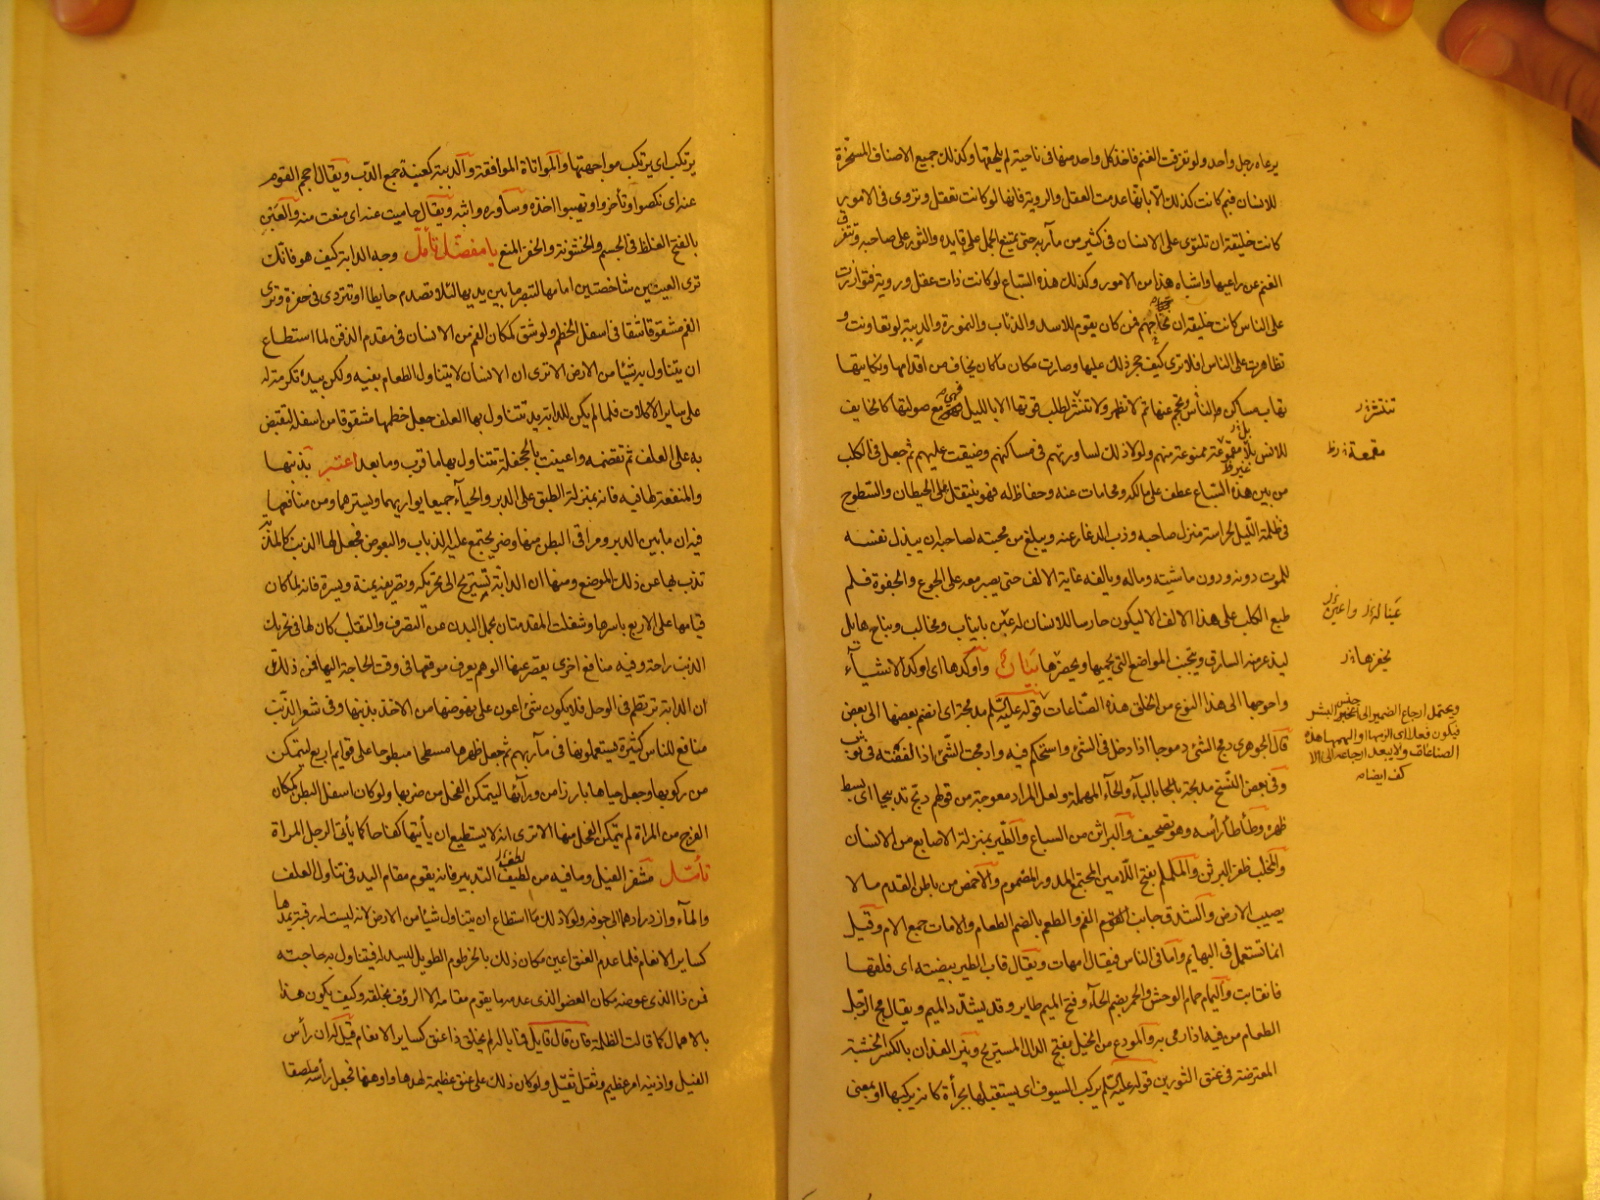 يرعاه رجل واحد ولو تفرقت الغنم فاخذ كل واحد منها في ناحية لم يلحقها وكذلك جميع الاصناف المسخرة
للانسان فبم كانت كذلك الا بانها عدمت العقل والروية فانها لو كانت تعقل وتروى في الامور
كانت خليقة ان تلتوى على الانسان في كثير من مآربه حتى يمتنع الجمل على قايده والثور على صاحبه وتتفرق
الغنم عن راعيها واشباه هذا من الامور وكذلك هذه السباع لو كانت ذات عقل وروية فتوازرت
على الناس كانت خليقة ان تجتاحهم فمن كان يقوم للاسد والذئاب والنمورة والدببة لو تعاونت و
تظاهرت على الناس افلا ترى كيف حجر ذلك عليها وصارت مكان ما كان يخاف من اقدامها ونكايتها
تهاب مساكن الناس وتحجم عنها ثم لا تظهر ولا تنتشر لطلب قوتها الا بالليل فهي مع صولتها كالخايف
للانس بل مقموعة ممنوعة منهم ولولا ذلك لساورتهم في مساكنهم وضيقت عليهم ثم جعل في الكلب
من بين هذه السباع عطف على مالكه ومحامات عنه وحفاظ له فهو ينتقل على الحيطان والسطوح
في ظلمة الليل لحراسة منزل صاحبه وذب الدغار عنه ويبلغ من محبته لصاحبه ان يبذل نفسه
للموت دونه ودون ماشيته وماله ويالفه غاية الالف حتى يصبر معه على الجوع والجفوة فلم
طبع الكلب على هذا الالف الا ليكون حارسا للانسان له عين بانياب ومخالب ونباح هايل
ليذعر منه السارق ويتجنب المواضع التي يحميها ويحضرها بيان وآوكدها اى اوكد الاشياء
واحوجها الى هذا النوع من الخلق هذه الصناعات قوله عليه السلم مدمجة اى انضم بعضها الى بعض
قال الجوهري دمج الشئ دموجا اذا دخل في الشئ واستحكم فيه وادمجت الشئ اذا لففته في ثوب
وفي بعض النسخ مدبحة بالباء والحاء المهملة ولعل المراد معوجة من قولهم دبح تدبيحا اى بسط
ظهره وطأطأ رأسه وهو تصحيف والبراثن من السباع والطير بمنزلة الاصابع من الانسان
والمخلب ظفر البرثن والململم بفتح اللامين المجتمع المدور المضموم والاخمص من باطن القدم ما لا
يصيب الارض والشدق جانب الفم والطعم بالضم الطعام والامات جمع الام وقيل
انما تستعمل في البهايم واما في الناس فيقال امهات ويقال قاب الطير بيضته اى فلقها
فانقابت واليمام حمام الوحش والحمر بضم الحاء وفتح الميم طاير وقد يشدد الميم ويقال مج الرجل
الطعام من فيه اذا رمى به والمودع من الخيل بفتح الدال المستريح ونير الفدان بالكسر الخشبة
المعترضة في عنق الثورين قوله عليه السلم يركب السيوف اى يستقبلها بجرأة كانه يركبها او بمعنى
تنتشر
مقمعة
عينا له واعين
يخفرها
ويحتمل ارجاع الضمير الى جنس البشر
فيكون فعلا اى الزمها والهمها هذه
الصناعات ولا يبعد ارجاعه الى الا
كف ايضا
يرتكب اى يرتكب مواجهتها والمواتاة الموافقة والدببة كعنبة جمع الدب ويقال احجم القوم
عنه اى نكصوا وتأخروا وتهيبوا اخذه وساوره واثبه ويقال حاميت عنه اى منعت منه والعبن
بالفتح الغلظ في الجسم والخشونة والخفر المنع يا مفضل تأمل وجه الدابة كيف هو فانك
ترى العينين شاخصتين امامها لتبصر ما بين يديها لئلا تصدم حايطا او تتردى في حفرة وترى
الفم مشقوقا شقا في اسفل الخطم ولو شق كمكان الفم من الانسان في مقدم الذقن لما استطاع
ان يتناول به شيئا من الارض الا ترى ان الانسان لا يتناول الطعام بفيه ولكن بيده تكرمة له
على ساير الآكلات فلما لم يكن للدابة يد تتناول بها العلف جعل خطمها مشقوقا من اسفله لتقبض
به على العلف ثم تقضمه واعينت بالجحفلة تتناول بها ما قرب وما بعد اعتبر بذنبها
والمنفعة لها فيه فانه بمنزلة الطبق على الدبر والحياء جميعا يواريهما ويسترهما ومن منافعها
فيه ان ما بين الدبر ومراقى البطن منها وضر يجتمع عليه الذباب والبعوض فجعل لها الذنب كالمذبة
تذب بها عن ذلك الموضع ومنها ان الدابة تستريح الى تحريكه وتصريفه يمنة ويسرة فانه لما كان
قيامها على الاربع باسرها وشغلت المقدمتان بحمل البدن عن التصرف والتقلب كان لها في تحريك
الذنب راحة وفيه منافع اخرى يقصر عنها الوهم يعرف موقعها في وقت الحاجة اليها فمن ذلك
ان الدابة ترتطم في الوحل فلا يكون شئ اعون على نهوضها من الاخذ بذنبها وفي شعر الذنب
منافع للناس كثيرة يستعملونها في مآربهم ثم جعل ظهرها مسطحا مبطوحا على قوايم اربع ليتمكن
من ركوبها وجعل حياها بارزا من ورآئها ليتمكن الفحل من ضربها ولو كان اسفل البطن كمكان
الفرج من المراة لم يتمكن الفحل منها الا ترى انه لا يستطيع ان يأتيها كفاحا كما يأتي الرجل المراة
تأمل مشفر الفيل وما فيه من لطيف التدبير فانه يقوم مقام اليد في تناول العلف
والماء وازدرادهما الى جوفه ولولا ذلك ما استطاع ان يتناول شيئا من الارض لانه ليست له رقبة يمدها
كساير الانعام فلما عدم العنق اعين مكان ذلك بالخرطوم الطويل ليسدله فيتناول به حاجته
فمن ذا الذى عوضه مكان العضو الذى عدمه ما يقوم مقامه الا الرؤف بخلقه وكيف يكون هذا
بالاهمال كما قالت الظلمة فان قال قايل فما باله لم يخلق ذا عنق كساير الانعام قيل له ان رأس
الفيل واذنيه امر عظيم وثقل ثقيل ولو كان ذلك على عنق عظيمة لهدها واوهنها فجعل رأسه ملصقا